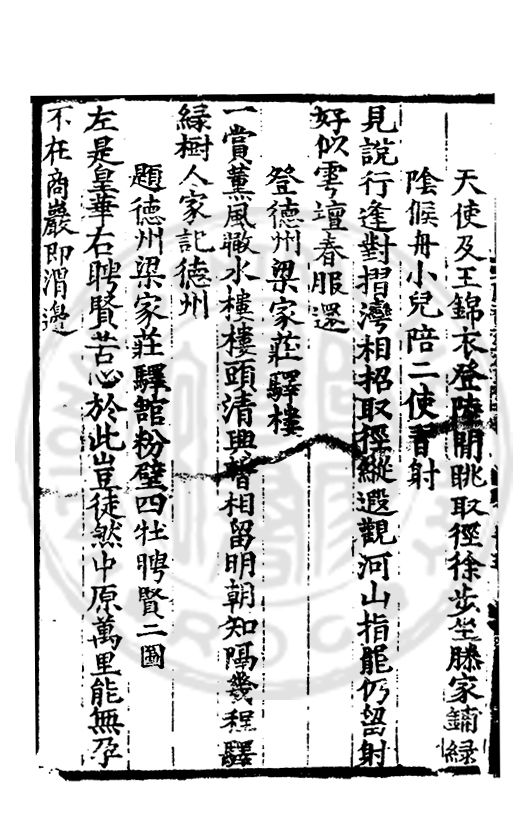 天使及王錦衣登陸閒眺取徑徐步坐滕家鋪綠
陰候舟小兒陪二使習射
見說行逢對摺灣相招取徑縱遐觀河山指罷仍留射
好似雩壇春服還
登德州梁家莊驛樓
一賞薰風瞰水樓樓頭清興暫相留明朝知隔幾程驛
綠樹人家記德州
題德州梁家莊驛館粉壁四牡聘賢二圖
左是皇華右聘賢苦心於此豈徒然中原萬里能無孕
不在商巖即渭邊